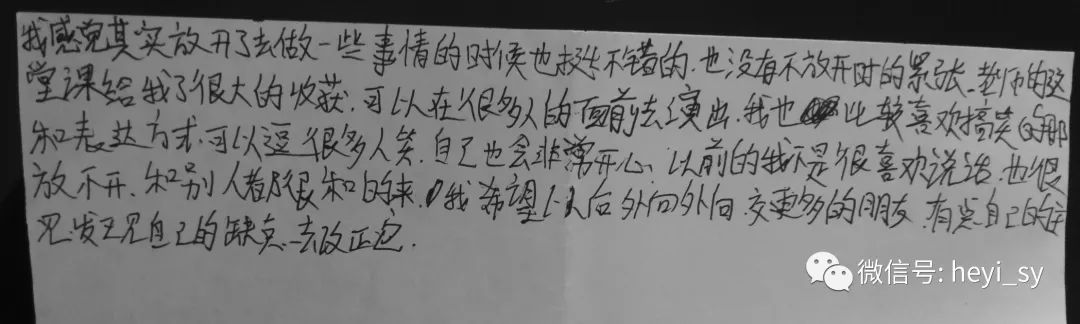 我感觉其实放开了去做一些事情的时候也挺不错的.也没有不放开时的紧张.老师的这
堂课给我了很大的收获.可以在很多人的面前去演出.我也比较喜欢搞笑的那
和表达方式.可以逗很多人笑.自己也会非常开心.以前的我不是很喜欢说话.也很
放不开.和别人都很和的来.我希望以后外向外向.交更多的朋友.有点自己的主
见.发现自己的缺点.去改正它.
微信号: heyi_sy